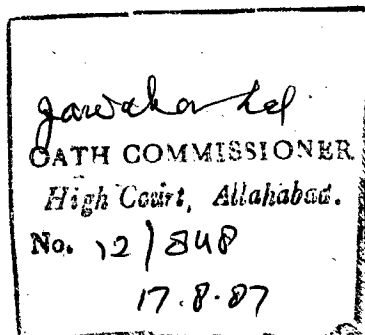 Jawahar Lal
OATH COMMISSIONER
High Court, Allahabad.
No. 12/848
17.8.87